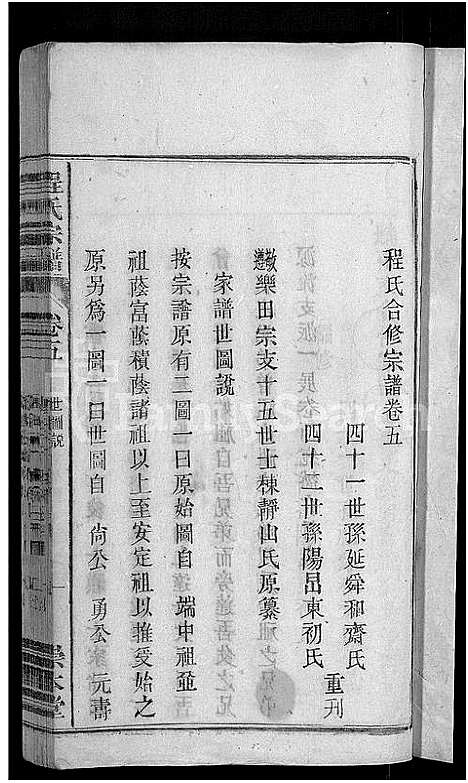 程氏合修宗譜卷五
四十一世孫延舜和齋氏
四十二世孫陽昂東初氏
重刊
樂田宗支十五世士棟靜山氏原纂
家譜世圖說
按宗譜原有二圖一曰原始圖自端中祖並
祖蔭富蔭積蔭諸祖以上至安定祖以推受始之
原另為一圖一曰世圖自尙公勇公元壽
程氏宗譜
卷五
世圖說
一
堂
FamilySearch